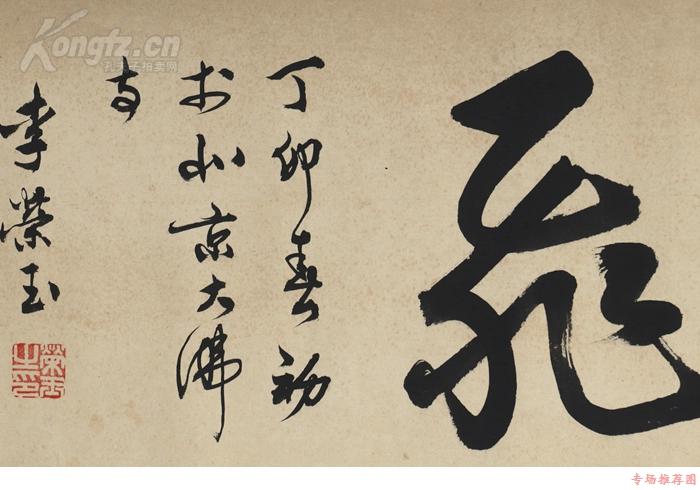 飛
丁卯春初
於北京大佛
寺
李榮玉
榮玉之印
Kongfz.cn
孔夫子拍卖网
专场推荐图